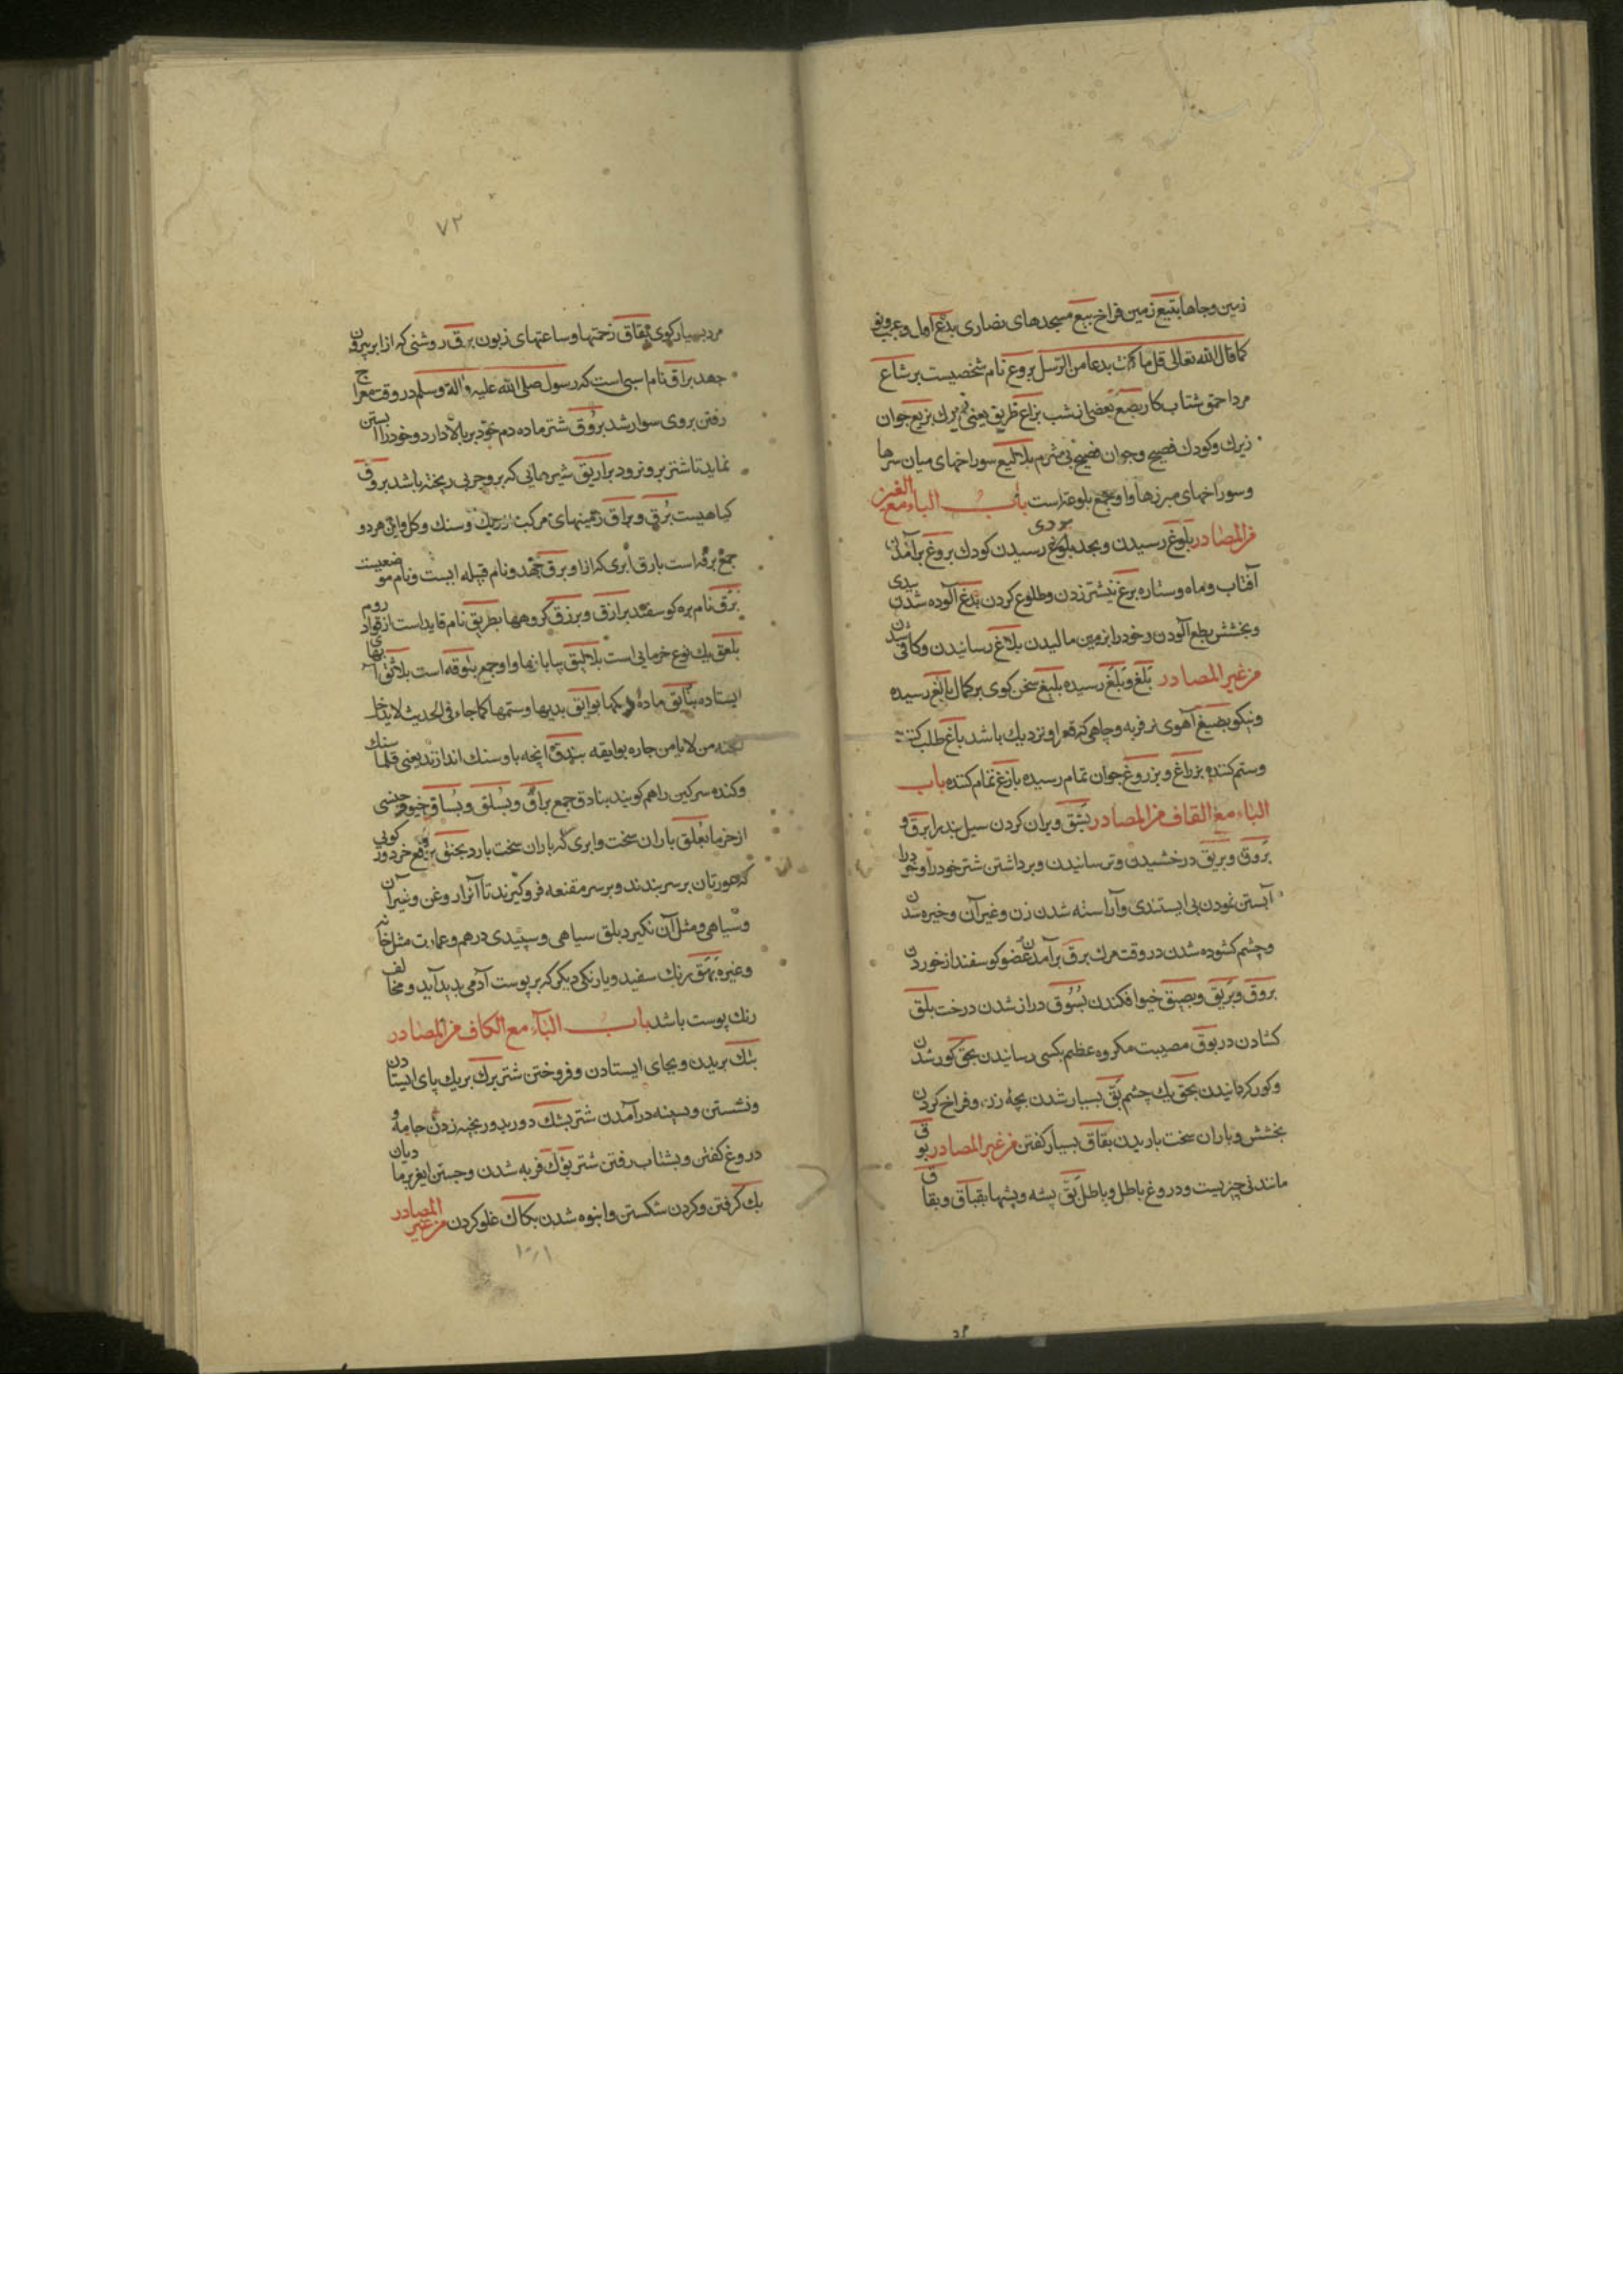 زمین و جاها بتیع زمین فراخ بیع مسجدهای نصاری بدع اول و
کما قال الله تعالی قل ما کنت بدعا من الرسل بروع نام شخصیست برشاع
مرد احمق شتاب کار بضع بعضی از شب بزاع ظریق یعنی زیرک بزیع جوان
زیرک و کودک فصیح و جوان فصیح بی شرم بلالیع سوراخهای میان سرها
و سوراخهای مبرزها و او جمع بلوعه است باب الباء مع الغین
من المصادر بلوغ رسیدن و بحد بلوغ رسیدن کودک بروغ برآمدن
آفتاب و ماه و ستاره برغ نیشتر زدن و طلوع کردن بدغ آلوده شدن
و بخشش بطع آلودن و خود را بزمین مالیدن بلاغ رسانیدن و کافی شدن
من غیر المصادر بلغ و بلغ رسیده بلیغ سخن کوی بر کمال بالغ رسیده
و نیکو بصیغ آهوی نر فربه و چاهی که قعر او نزدیک باشد باغ طلب کننده
و ستم کننده بزراغ و بزروغ جوان تمام رسیده بازغ تمام کننده باب
الباء مع القاف من المصادر بثق ویران کردن سیل بند را برق و
بروق و بریق درخشیدن و ترسانیدن و برداشتن شتر خود را و خود را
آبستن نمودن بی ایستندی و آراسته شدن زن و غیر آن و خیره شدن
و چشم کشوده شدن در وقت مرک برق برآمدن عضو کوسفند از خوردن
بروق و بریق و بصیق خیو افکندن بسوق دراز شدن درخت بلق
کشادن در بوق مصیبت مکروه عظیم بکسی رسانیدن بحق کور شدن
و کور کردانیدن بحق یک چشم بق بسیار شدن بچه زن و فراخ کردن
بخشش و باران سخت باریدن بقاق بسیار کفتن من غیر المصادر بوق
مانند نی چیزیست و دروغ باطل و باطل بق پشه و پشها بقباق و بقاق
۷۲
مرد بسیار کوی بقاق زحمتها و ساعتهای زبون برق روشنی که از ابر بیرون
جهد براق نام اسبی است که رسول صلی الله علیه وآله وسلم در وقت معراج
رفتن بر وی سوار شد بروق شتر ماده دم خود بر بالا دارد و خود را آبستن
نماید تا شتر برو نرود براریق شیرهایی که برو چربی ریخته باشد بروق
کیاهیست برق و براق زمینهای مرکب از ریک و سنک و کل و این هر دو
جمع برقه است بارق ابری که از او برق جهد و نام قبیله ایست و نام موضعیست
برق نام بره کوسفند برازق و برزق کروهها بطریق نام قاید است از قواد روم
بلعق یک نوع خرمایی است بلالیق بیابانها و او جمع بلوقه است بلاثق آبهای
ایستاده بنایق ماده کها بوایق بدیها و ستمها کما جاء فی الحدیث لا یدخل
الجنه من لا یامن جاره بوایقه بندق آنچه باو سنک اندازند یعنی قلماسنک
و کنده سرکین را هم کویند بنادق جمع براق و بسلق و بساق خیو و جنسی
از خرما بعلق باران سخت و ابری که باران سخت بارد بخنق برقع خرد و رکویی
که عورتان بر سر بندند و بر سر مقنعه فرو کیرند تا آنرا روغن و غیر آن
و سیاهی و مثل آن نکیرد بلق سیاهی و سپیدی درهم و عمارت مثل خانه
و غیره بهق رنک سفید و یا رنکی دیکر که بر پوست آدمی پدید آید و مخالف
رنک پوست باشد باب الباء مع الکاف من المصادر
بتک بریدن و بجای ایستادن و فروختن شتر برک بریک پای ایستادن
و نشستن و بسینه درآمدن شتر بشک دور بدور بخیه زدن جامه و
دروغ کفتن و بشتاب رفتن شتر بوک فربه شدن و جستن ایغر بر مادیان
بک کرفتن و کردن شکستن و انبوه شدن بکاک غلو کردن من غیر المصادر